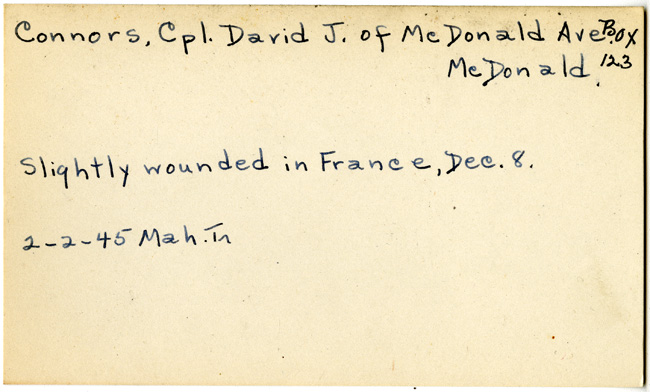 Connors, Cpl. David J. of McDonald Ave. Box
McDonald, 123
Slightly wounded in France, Dec. 8.
2-2-45 Mah. Tr